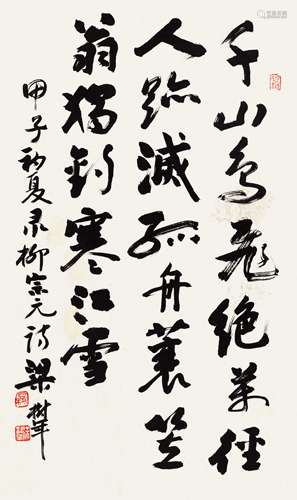 千山鸟飞绝万径
人踪灭孤舟蓑笠
翁独钓寒江雪
甲子初夏录柳宗元诗梁树年